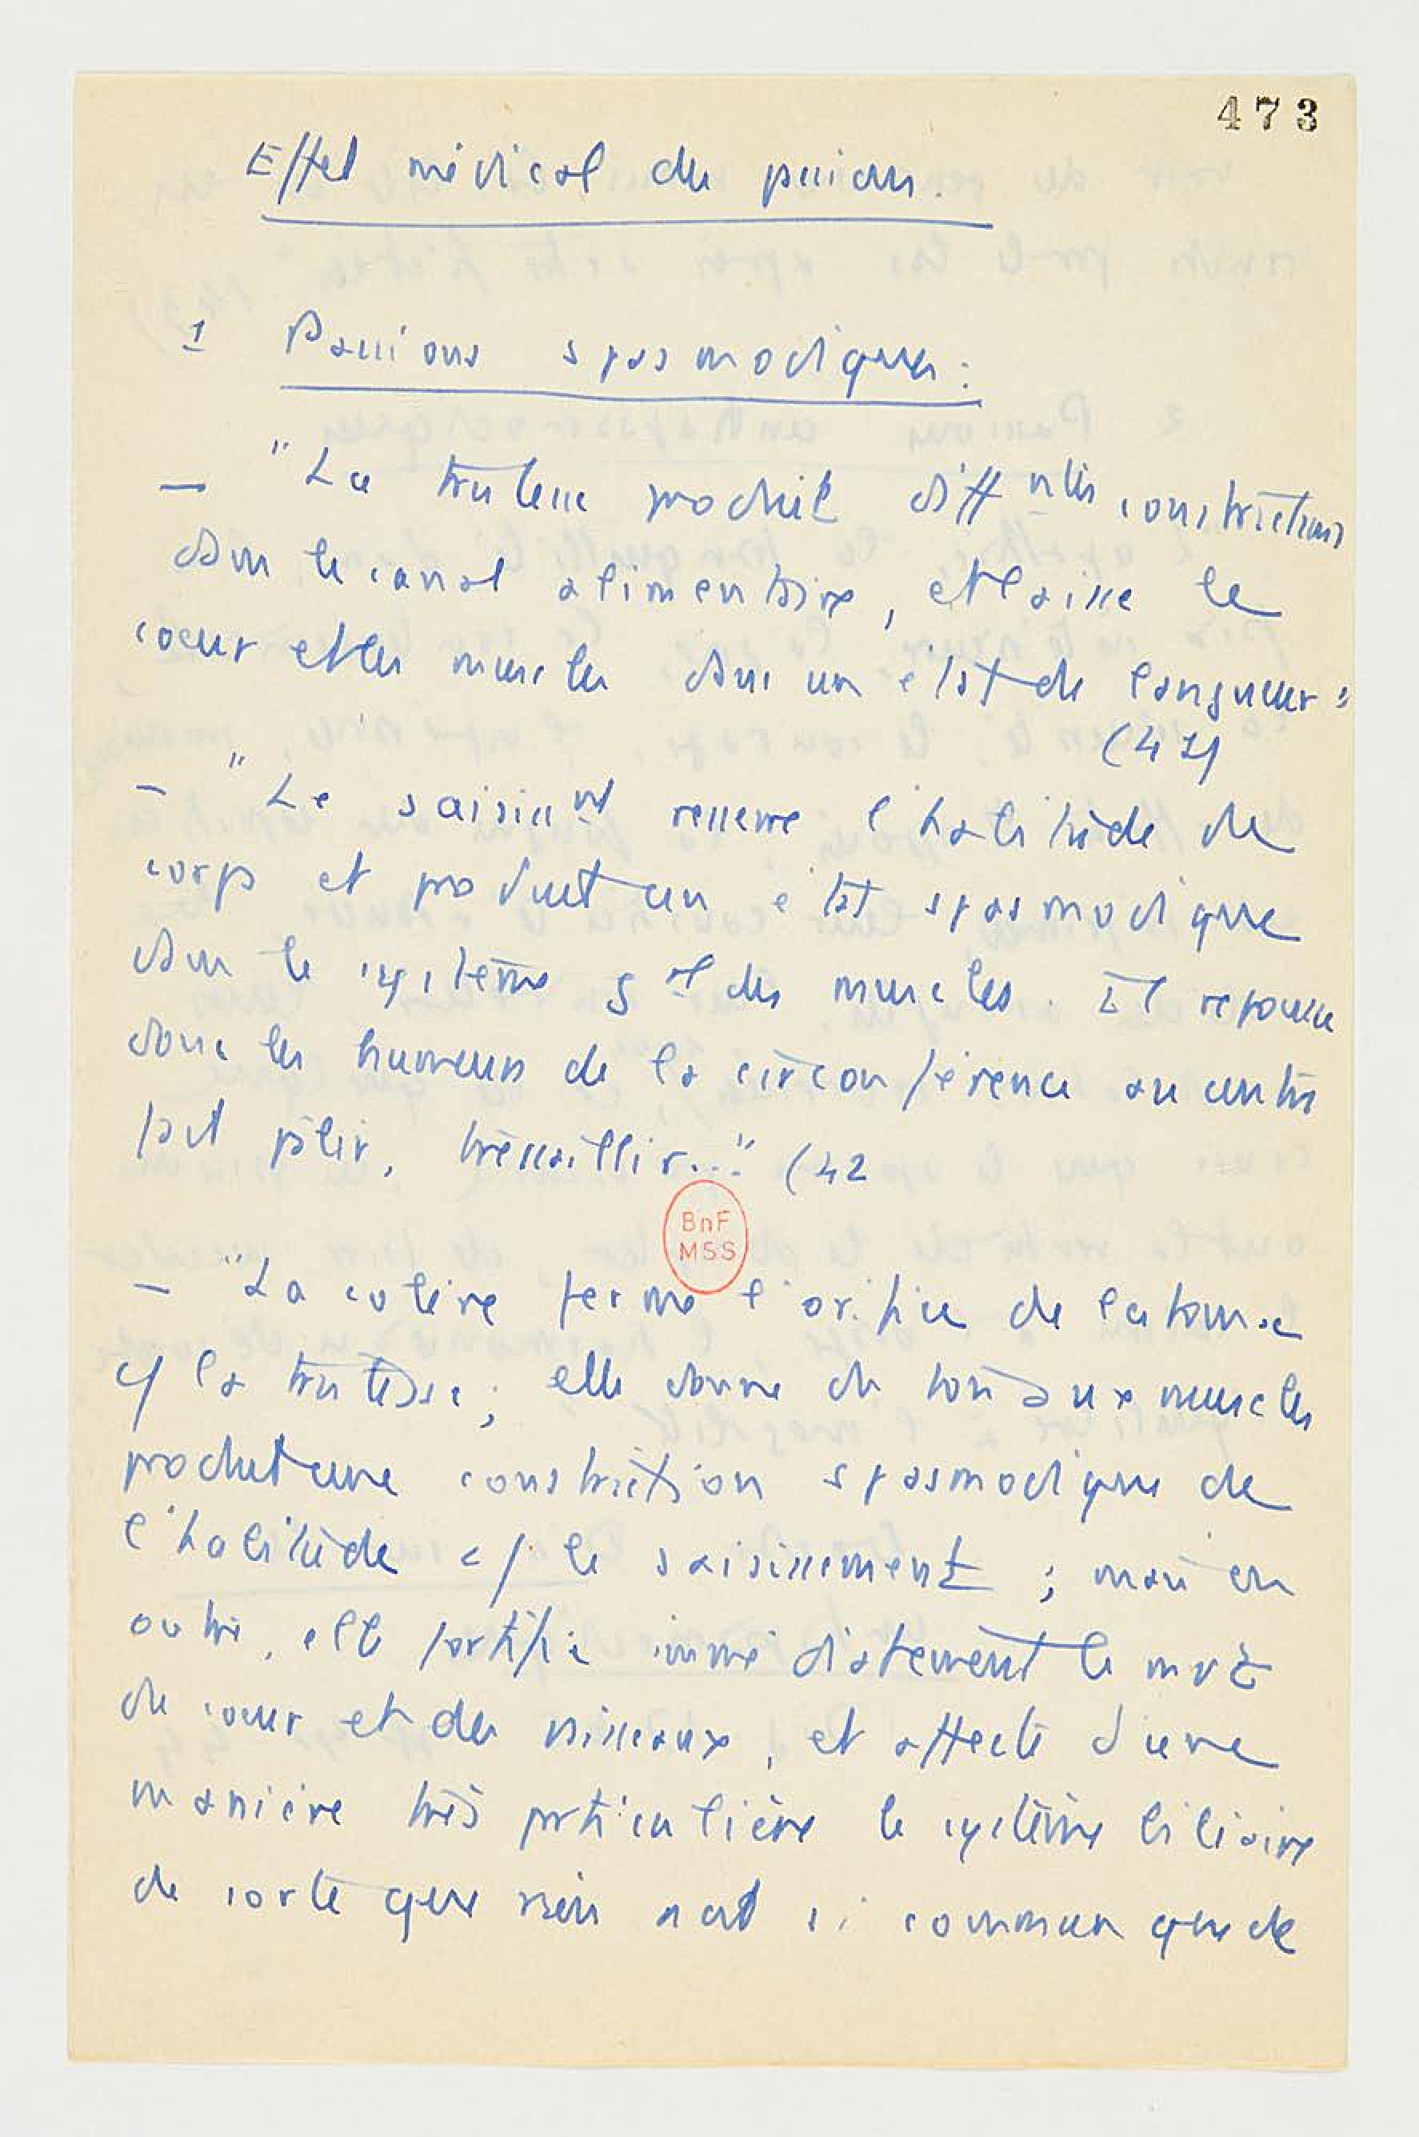 473
Effet médical des passions.
1 Passions spasmodiques :
— "La tristesse produit diff ntes constrictions
dans le canal alimentaire, et laisse le
coeur et les muscles dans un état de langueur"
(42)
— "Le saisisst resserre l'habitude du
corps et produit un état spasmodique
dans le système gal des muscles. Il repousse
donc les humeurs de la circonférence au centre
fait pâlir, tressaillir..." (42
BnF
MSS
— "La colère ferme l'orifice de l'estomac
cf la tristesse ; elle donne du ton aux muscles
produit une constriction spasmodique de
l'habitude cf le saisissement ; mais en
outre, elle fortifie immédiatement le mvt
du coeur et des vaisseaux, et affecte d'une
manière très particulière le système biliaire
de sorte que rien n'est si commun que de